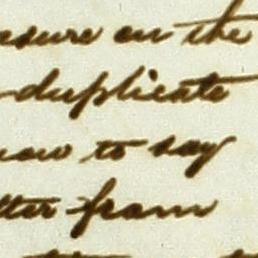 asure on the
duplicate
now to say
tter from